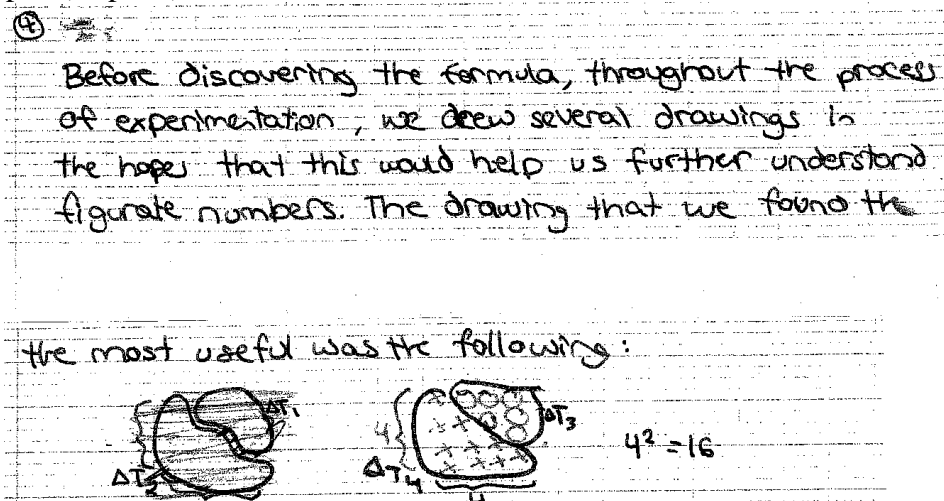 ④
Before discovering the formula, throughout the process
of experimentation, we drew several drawings in
the hopes that this would help us further understand
figurate numbers. The drawing that we found the
the most useful was the following:
ΔT₁ ΔT₃
4 4² = 16
ΔT₂ ΔT₄
4